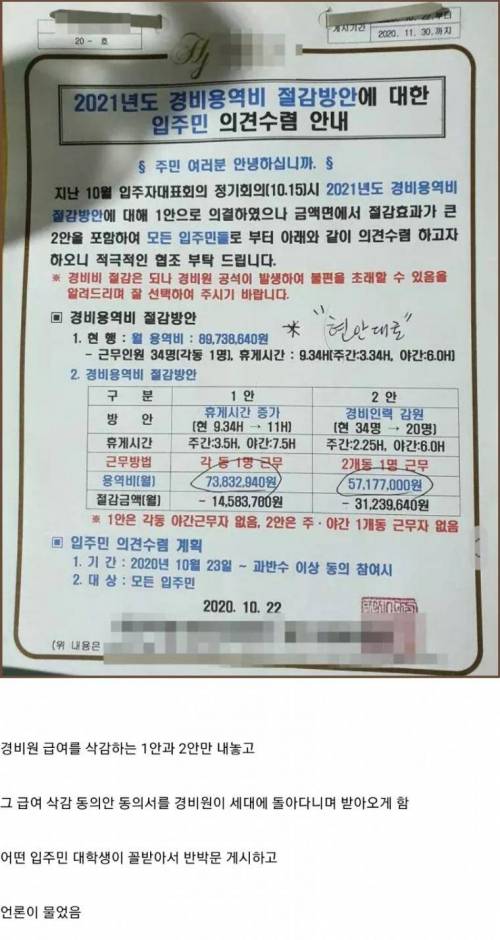 20 - 호
게시기간
2020. 11. 30.까지
2021년도 경비용역비 절감방안에 대한
입주민 의견수렴 안내
§ 주민 여러분 안녕하십니까. §
지난 10월 입주자대표회의 정기회의(10.15)시 2021년도 경비용역비
절감방안에 대해 1안으로 의결하였으나 금액면에서 절감효과가 큰
2안을 포함하여 모든 입주민들로 부터 아래와 같이 의견수렴 하고자
하오니 적극적인 협조 부탁 드립니다.
※ 경비비 절감은 되나 경비원 공석이 발생하여 불편을 초래할 수 있음을
알려드리며 잘 선택하여 주시기 바랍니다.
▣ 경비용역비 절감방안
* "현안대로"
1. 현 행 : 월 용역비 : 89,738,640원
- 근무인원 34명(각동 1명), 휴게시간 : 9.34H(주간:3.34H, 야간:6.0H)
2. 경비용역비 절감방안
구 분 1 안 2 안
방 안 휴게시간 증가 (현 9.34H → 11H) 경비인력 감원 (현 34명 → 20명)
휴게시간 주간:3.5H, 야간:7.5H 주간:2.25H, 야간:6.0H
근무방법 각 동 1명 근무 2개동 1명 근무
용역비(월) 73,832,940원 57,177,000원
절감금액(월) - 14,583,780원 - 31,239,640원
※ 1안은 각동 야간근무자 없음, 2안은 주·야간 1개동 근무자 없음
▣ 입주민 의견수렴 계획
1. 기 간 : 2020년 10월 23일 ~ 과반수 이상 동의 참여시
2. 대 상 : 모든 입주민
2020. 10. 22
(위 내용은
경비원 급여를 삭감하는 1안과 2안만 내놓고
그 급여 삭감 동의안 동의서를 경비원이 세대에 돌아다니며 받아오게 함
어떤 입주민 대학생이 꼴받아서 반박문 게시하고
언론이 물었음